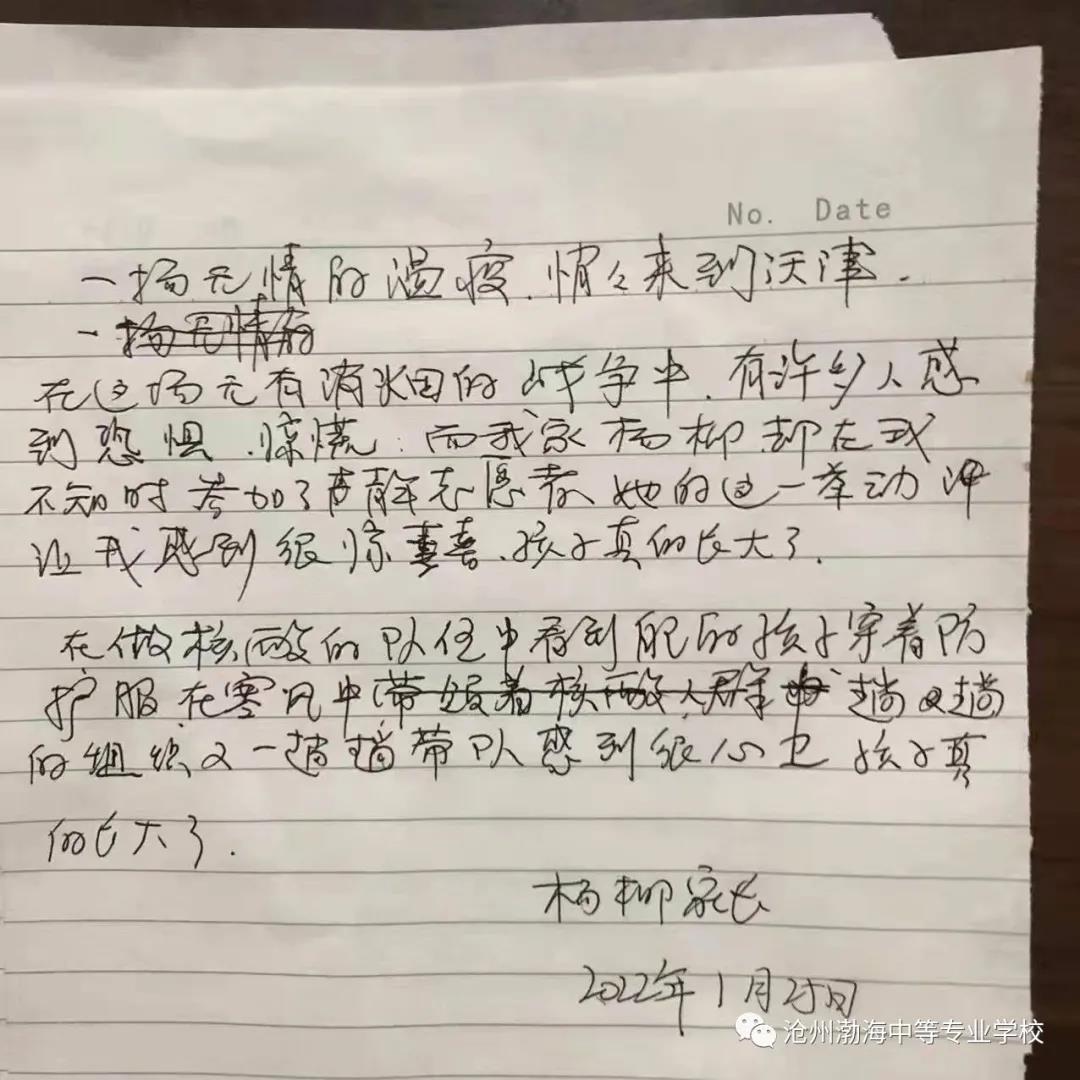 No. Date
一场无情的温疫.悄々来到沃津.
一场无情的
在这场无有消火因的战争中.有许多人感
到恐惧.惊慌.而我家杨柳却在我
不知时参加了声静年志愿者.她的这一举动
让我感到很惊喜.孩子真的长大了.
在做核酸的队伍中看到的孩子穿着防
护服在寒风中带领着核酸人群中趟又趟
的组织又一趟趟带队感到很心 孩子真
的长大了.
杨柳家长
2022年1月25日
沧州渤海中等专业学校